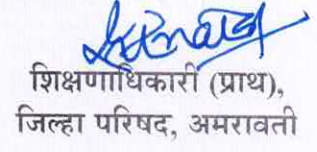 शिक्षणाधिकारी (प्राथ),
जिल्हा परिषद, अमरावती